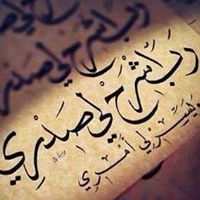 رب اشرح لي صدري
رب اشرح لي صدري
ويسر لي أمري